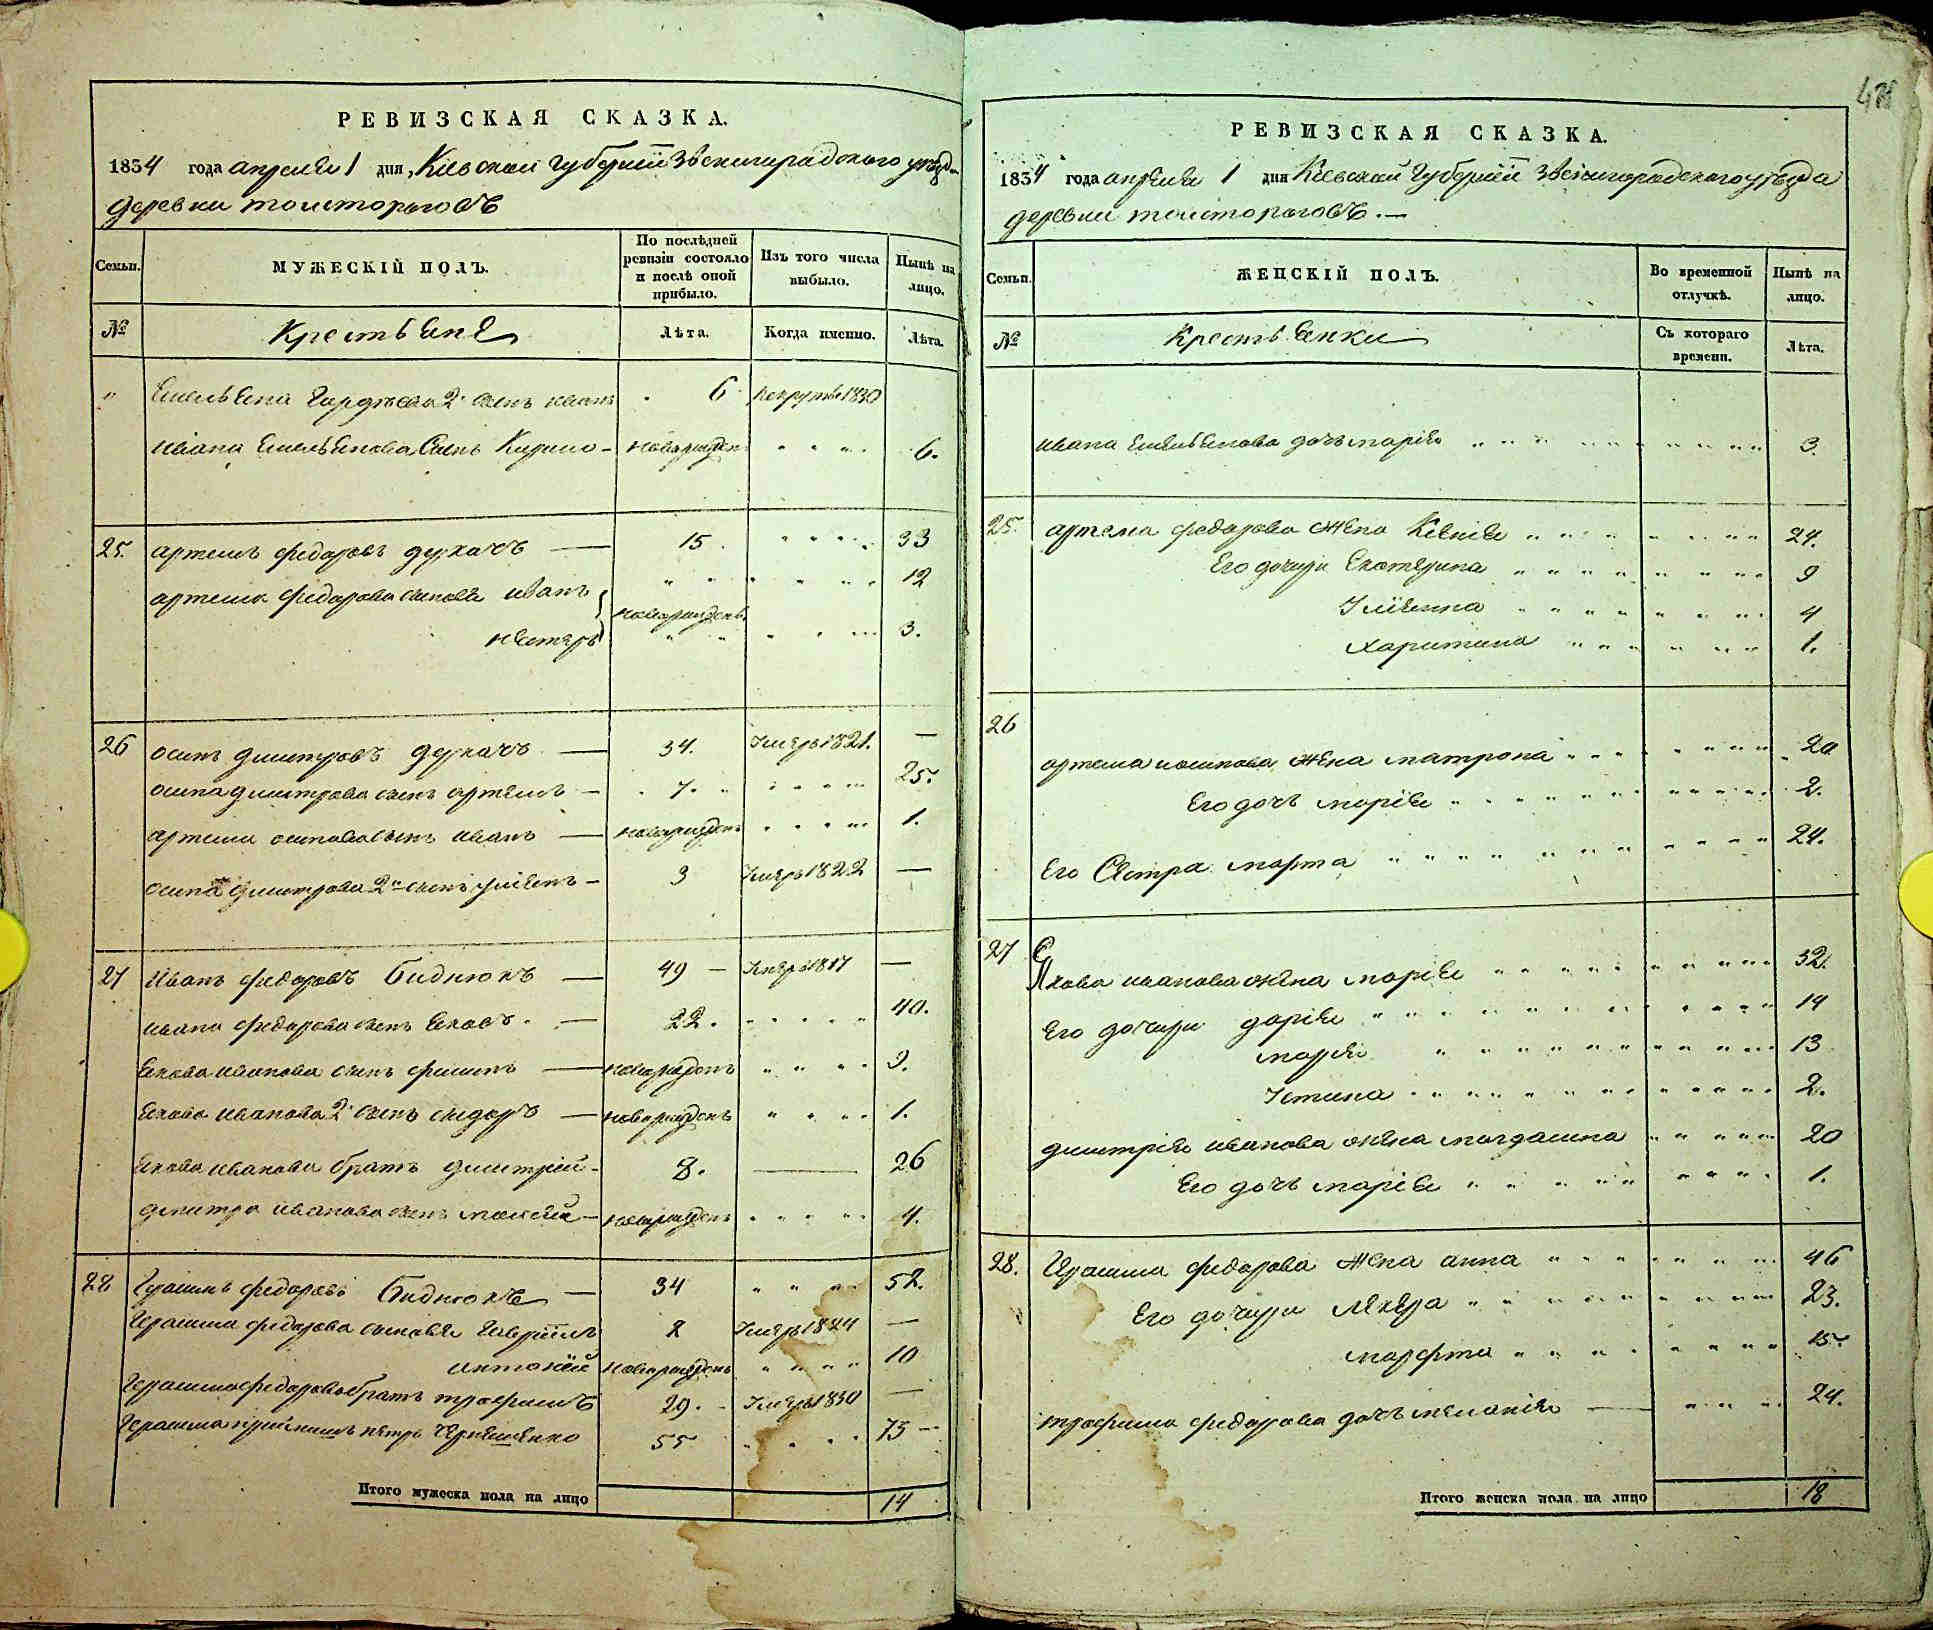 РЕВИЗСКАЯ СКАЗКА.
1834 года апреля 1 дня, Киевской губернии Звенигорадского уезда
деревни толсторогова
Семьи. МУЖЕСКІЙ ПОЛЪ. По послѣдней ревизіи состояло и послѣ оной прибыло. Изъ того числа выбыло. Нынѣ на лицо.
№ Крестьяне Лѣта. Когда именно. Лѣта.
" Емельяна Гордеева 2й сынъ иванъ 6 рекрутъ 1830
ивана Емельянова Сынъ Кирило новорожден 6.
25. артемъ федоровъ деркачъ 15. 33
артема федорова сыновья иванъ новорожден 12
нестеръ 3.
26 осипъ дмитровъ деркачъ 34. Умеръ 1821. —
осипа дмитрова сынъ артемъ 7. 25.
артема осипова сынъ иванъ новорожден 1.
осипа дмитрова 2й сынъ 3 Умеръ 1822 —
27 Иванъ федоровъ Биднюкъ 49 — Умеръ 1817 —
ивана федорова сынъ яковъ. 22. 40.
якова иванова сынъ филипъ новорожденъ 9.
якова иванова 2й сынъ сидоръ новорожденъ 1.
якова иванова братъ дмитрій 8. 26
дмитра иванова сынъ новорожденъ 4.
28 Герасимъ федоровъ Биднюкъ 34 52.
Герасима федорова сыновья Гавріилъ 2 Умеръ 1824 —
антоній новорожденъ 10
Герасима федорова братъ трофимъ 29. Умеръ 1830 —
Герасима петръ 55 73 —
Итого мужеска пола на лицо 14
РЕВИЗСКАЯ СКАЗКА.
1834 года апреля 1 дня Киевской Губерніи Звенигорадского уѣзда
деревни толсторогова.
Семьи. ЖЕНСКІЙ ПОЛЪ. Во временной отлучкѣ. Нынѣ на лицо.
№ Крестьянки Съ котораго времени. Лѣта.
ивана Емельянова дочь марія 3.
25. артема федорова жена Ксенія 24.
Его дочери Екатерина 9
Уліянна 4
Харитина 1.
26
артема иосипова жена матрона 20
Его дочь марія 2.
Его Сестра марта 24.
27 Якова иванова жена марія 32.
Его дочери дарія 14
марія 13
Устина 2.
дмитрія иванова жена магдалина 20
Его дочь марія 1.
28. Герасима федорова жена анна 46
Его дочери 23.
марфта 15.
трофима федорова дочь меланія 24.
Итого женска пола на лицо 18